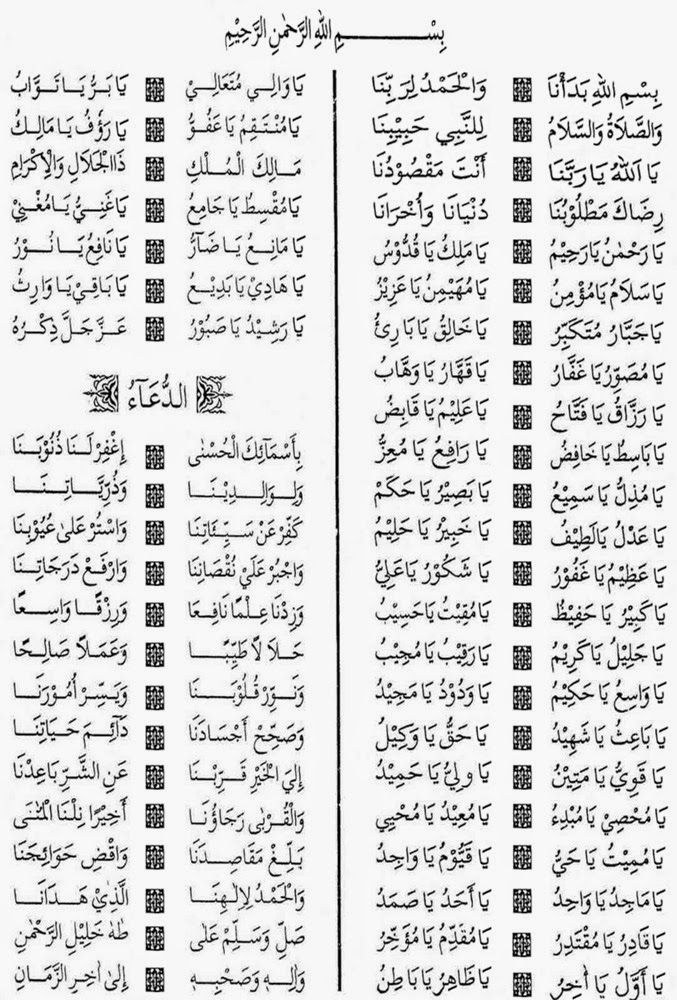 بِسْمِ اللهِ الرَّحْمٰنِ الرَّحِيْمِ
بِسْمِ اللهِ بَدَأْنَا وَالْحَمْدُ لِرَبِّنَا
وَالصَّلَاةُ وَالسَّلَامُ لِلنَّبِي حَبِيْبِنَا
يَا اَللهُ يَا رَبَّنَا أَنْتَ مَقْصُوْدُنَا
رِضَاكَ مَطْلُوْبُنَا دُنْيَانَا وَأُخْرَانَا
يَا رَحْمٰنُ يَارَحِيْمُ يَا مَلِكُ يَا قُدُّوْسُ
يَا سَلَامُ يَامُؤْمِنُ يَا مُهَيْمِنُ يَا عَزِيْزُ
يَا جَبَّارُ مُتَكَبِّرُ يَا خَالِقُ يَا بَارِئُ
يَا مُصَوِّرُ يَا غَفَّارُ يَا قَهَّارُ يَا وَهَّابُ
يَا رَزَّاقُ يَا فَتَّاحُ يَا عَلِيْمُ يَا قَابِضُ
يَا بَاسِطُ يَا خَافِضُ يَا رَافِعُ يَا مُعِزُّ
يَا مُذِلُّ يَا سَمِيْعُ يَا بَصِيْرُ يَا حَكَمْ
يَا عَدْلُ يَالَطِيْفُ يَا خَبِيْرُ يَا حَلِيْمُ
يَا عَظِيْمُ يَا غَفُوْرُ يَا شَكُوْرُ يَاعَلِيُّ
يَا كَبِيْرُ يَا حَفِيْظُ يَا مُقِيْتُ يَاحَسِيْبُ
يَا جَلِيْلُ يَاكَرِيْمُ يَا رَقِيْبُ يَا مُجِيْبُ
يَا وَاسِعُ يَا حَكِيْمُ يَا وَدُوْدُ يَا مَجِيْدُ
يَا بَاعِثُ يَا شَهِيْدُ يَا حَقُّ يَا وَكِيْلُ
يَا قَوِيُّ يَا مَتِيْنُ يَا وَلِيُّ يَا حَمِيْدُ
يَا مُحْصِيْ يَا مُبْدِءُ يَا مُعِيْدُ يَا مُحْيِي
يَا مُمِيْتُ يَا حَيُّ يَا قَيُّوْمُ يَا وَاجِدُ
يَا مَاجِدُ يَا وَاحِدُ يَا أَحَدُ يَا صَمَدُ
يَا قَادِرُ يَا مُقْتَدِرُ يَا مُقَدِّمُ يَا مُؤَخِّرُ
يَا أَوَّلُ يَا أٰخِرُ يَا ظَاهِرُ يَا بَاطِنُ
يَا وَالِي مُتَعَالِيْ يَا بَرُّ يَا تَوَّابُ
يَامُنْتَقِمُ يَا عَفُوُّ يَا رَؤُفُ يَا مَالِكُ
مَالِكَ الْمُلْكِ ذَاالْجَلَالِ وَالْإِكْرَامِ
يَامُقْسِطُ يَا جَامِعُ يَاغَنِيُّ يَامُغْنِيْ
يَا مَانِعُ يَا ضَآرُّ يَا نَافِعُ يَا نُوْرُ
يَا هَادِيْ يَا بَدِيْعُ يَا بَاقِيْ يَا وَارِثُ
يَا رَشِيْدُ يَا صَبُوْرُ عَزَّ جَلَّ ذِكْرُهُ
الدُّعَآءُ
بِأَسْمَآئِكَ الْحُسْنٰى إِغْفِرْ لَنَا ذُنُوْبَنَا
وَلِوَالِدِيْنَا وَذُرِّيَّاتِنَا
كَفِّرْ عَنْ سَيِّئَاتِنَا وَاسْتُرْ عَلىٰ عُيُوْبِنَا
وَاجْبُرْ عَلَيْ نُقْصَانِنَا وَارْفَعْ دَرَجَاتِنَا
وَزِدْنَا عِلْمًا نَافِعَا وَرِزْقًا وَاسِعًا
حَلَا لًا طَيِّبًا وَعَمَلًا صَالِحًا
وَنَوِّرْ قُلُوْبَنَا وَيَسِّرْ أُمُوْرَنَا
وَصَحِّحْ أَجْسَادَنَا دَآئِمَ حَيَاتِنَا
إِلَيَ الْخَيْرِ قَرِّبْنَا عَنِ الشَّرِّ بَاعِدْنَا
وَالْقُرْبٰى رَجَاؤُنَا أَخِيْرًا نِلْنَا الْمُنٰى
بَلِّغْ مَقَاصِدَنَا وَاقْضِ حَوَائِجَنَا
وَالْحَمْدُ لِإِلٰهِنَا الَّذِيْ هَدَانَا
صَلِّ وَسَلِّمْ عَلٰى طٰهٰ خَلِيْلِ الرَّحْمٰنِ
وَاٰلِهٖ وَصَحْبِهٖ إِلىٰ اٰخِرِ الزَّمَانِ